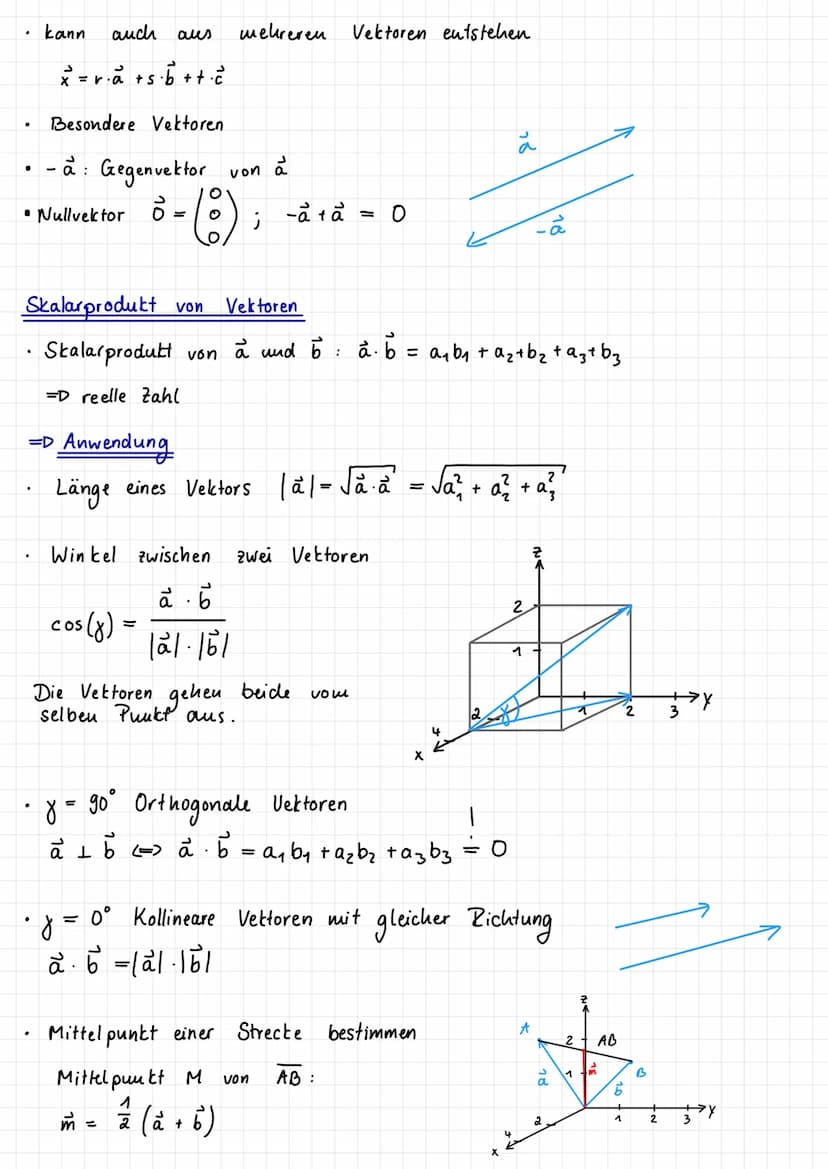 • kann auch aus mehreren Vektoren entstehen
x⃗ = r·a⃗ + s·b⃗ + t·c⃗
• Besondere Vektoren
• -a⃗ : Gegenvektor von a⃗
• Nullvektor 0⃗ = (0 0 0) ; -a⃗ + a⃗ = 0
a⃗
-a⃗
Skalarprodukt von Vektoren
• Skalarprodukt von a⃗ und b⃗ : a⃗·b⃗ = a₁b₁ + a₂+b₂ + a₃+b₃
=> reelle Zahl
=> Anwendung
• Länge eines Vektors |a⃗| = √(a⃗·a⃗) = √(a₁² + a₂² + a₃²)
• Winkel zwischen zwei Vektoren
cos(γ) = (a⃗ · b⃗) / (|a⃗|·|b⃗|)
Die Vektoren gehen beide vom
selben Punkt aus.
z
2
1
2 γ 1 2 3 y
4
x
• γ = 90° Orthogonale Vektoren
a⃗ ⊥ b⃗ <=> a⃗ · b⃗ = a₁b₁ + a₂b₂ + a₃b₃ =! 0
• γ = 0° Kollineare Vektoren mit gleicher Richtung
a⃗ · b⃗ = |a⃗|·|b⃗|
• Mittelpunkt einer Strecke bestimmen
Mittelpunkt M von A̅B̅ :
m⃗ = 1/2 (a⃗ + b⃗)
z
A 2 AB
a⃗ 1 m⃗ b⃗ B
2 1 2 3 y
4
x